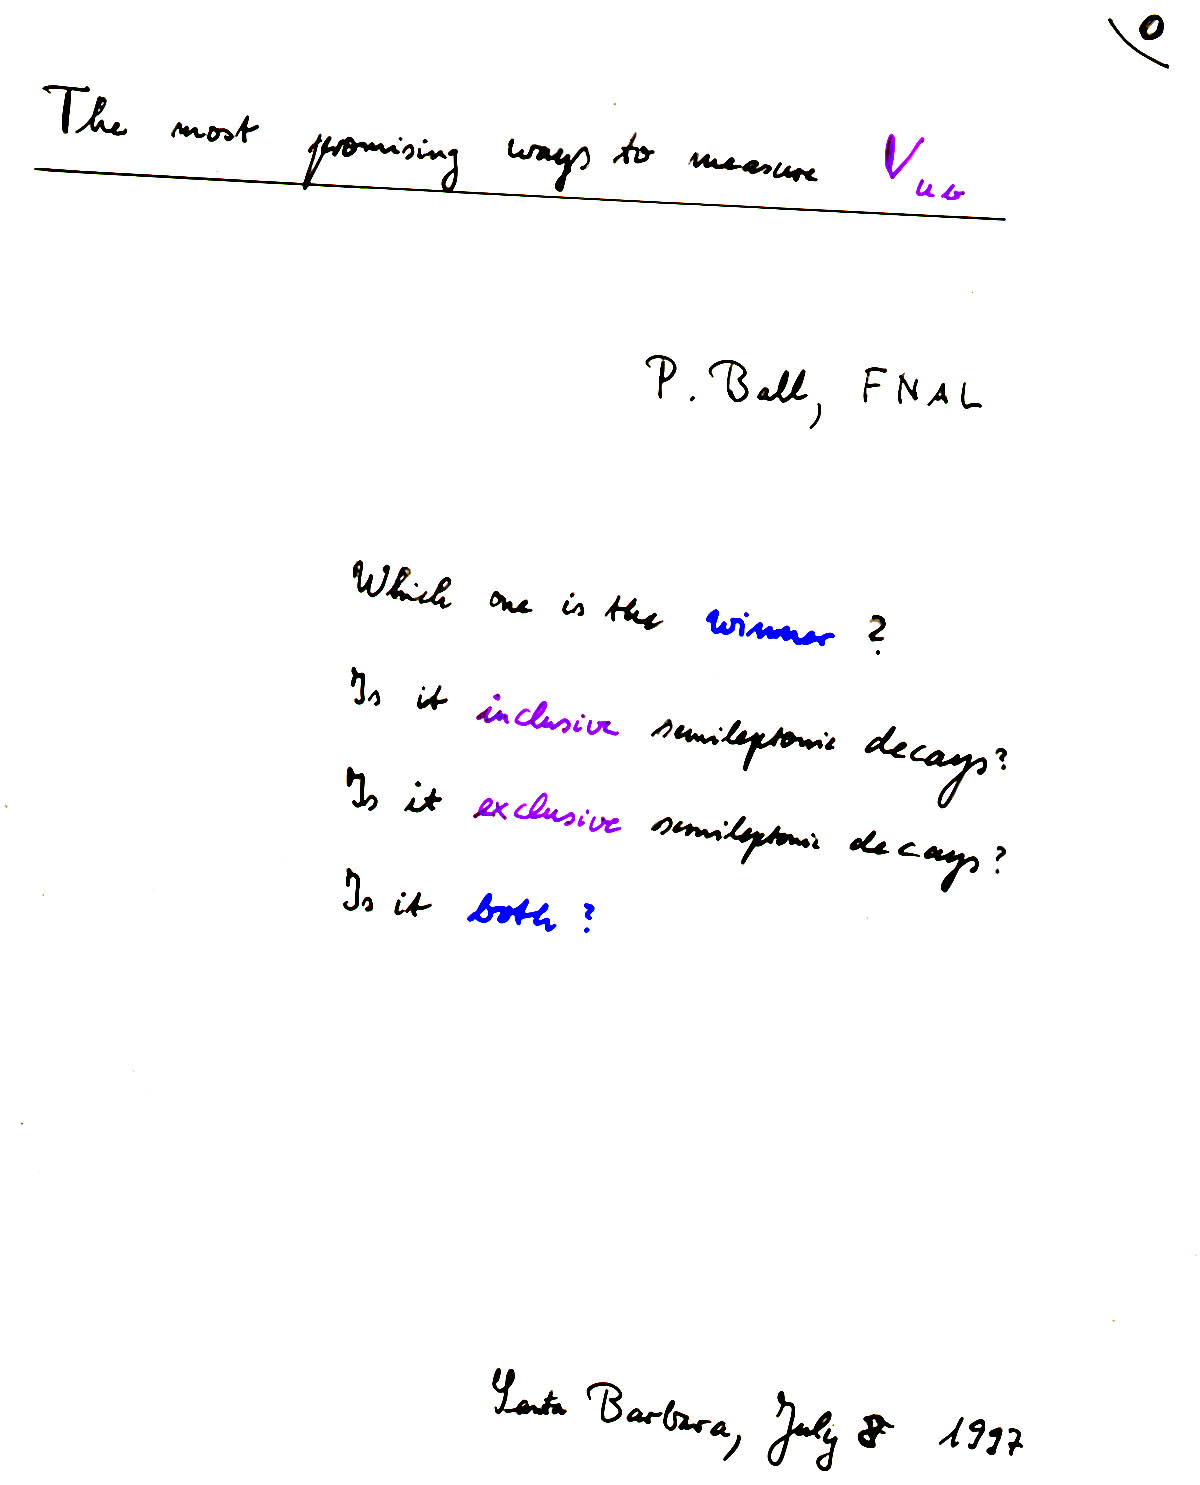 0
The most promising ways to measure V_ub
P. Ball, FNAL
Which one is the winner?
Is it inclusive semileptonic decays?
Is it exclusive semileptonic decays?
Is it both?
Santa Barbara, July 8 1997